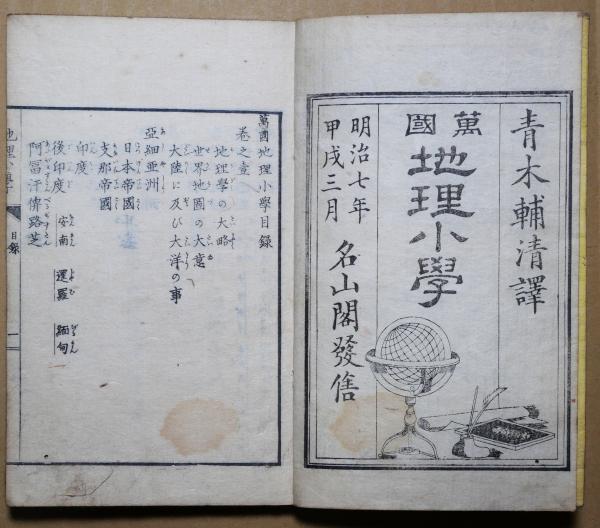 青木輔清譯
萬國
地理小學
明治七年
甲戌三月
名山閣發售
萬國地理小學目録
卷之壹
地理學の大略
世界地圖の大意
大陸に及び大洋の事
亞細亜洲
日本帝國
支那帝國
印度
後印度 安南 暹羅 緬甸
阿冨汗 俾路芝
目録